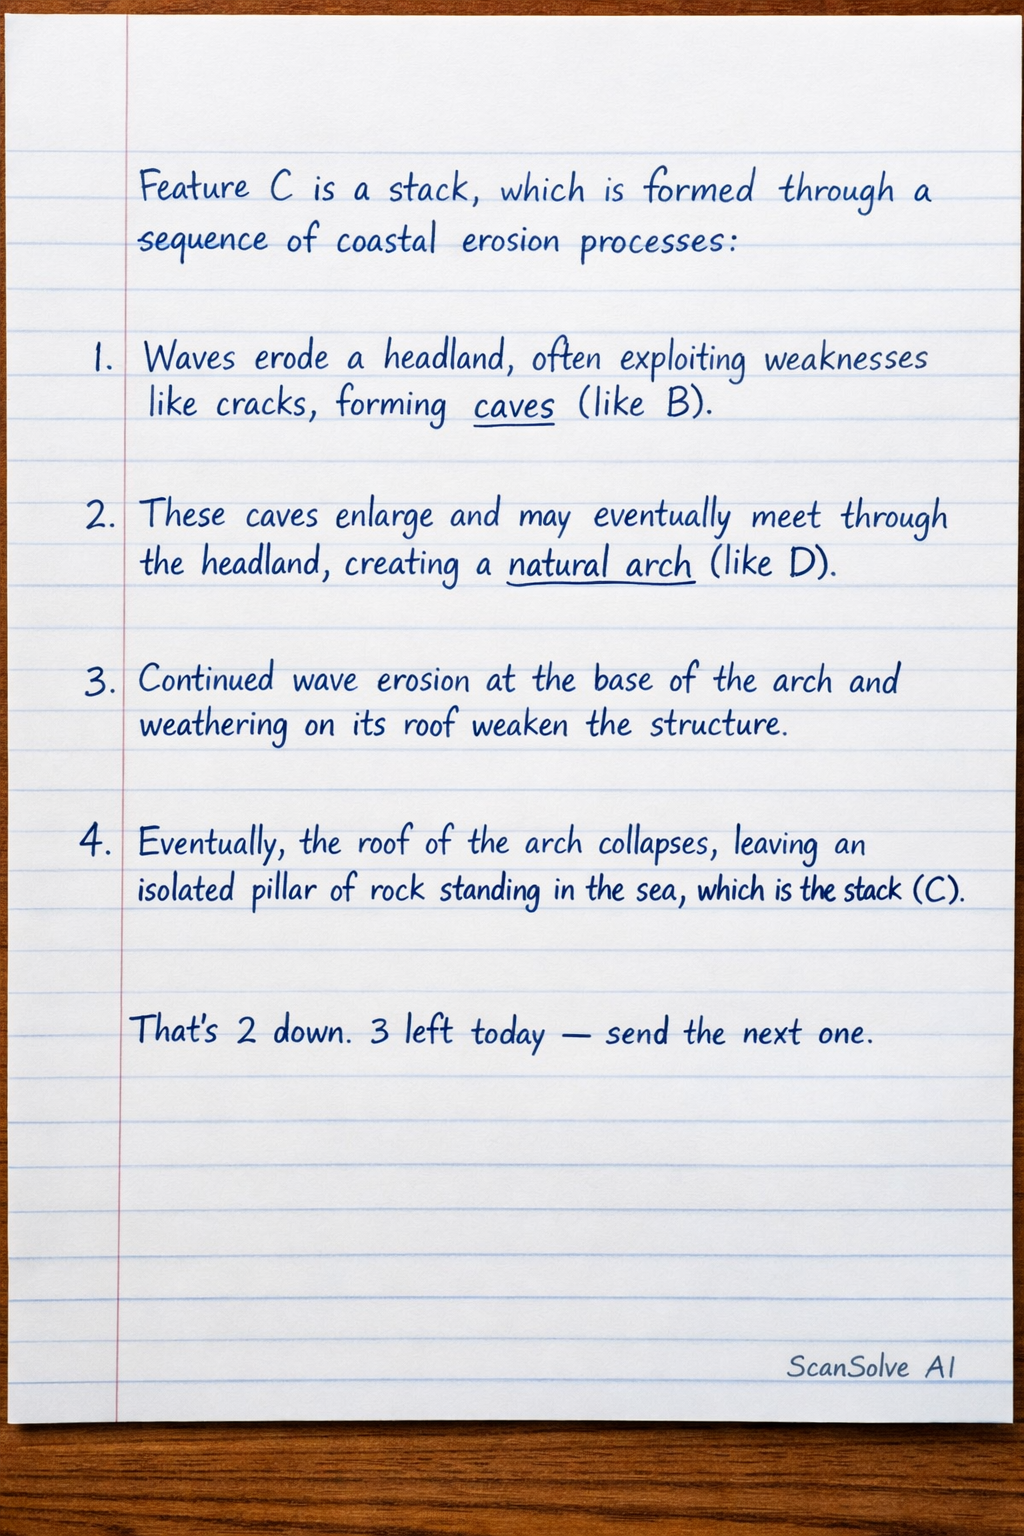 Feature C is a stack, which is formed through a
sequence of coastal erosion processes:
1. Waves erode a headland, often exploiting weaknesses
like cracks, forming caves (like B).
2. These caves enlarge and may eventually meet through
the headland, creating a natural arch (like D).
3. Continued wave erosion at the base of the arch and
weathering on its roof weaken the structure.
4. Eventually, the roof of the arch collapses, leaving an
isolated pillar of rock standing in the sea, which is the stack (C).
That's 2 down. 3 left today — send the next one.
ScanSolve AI